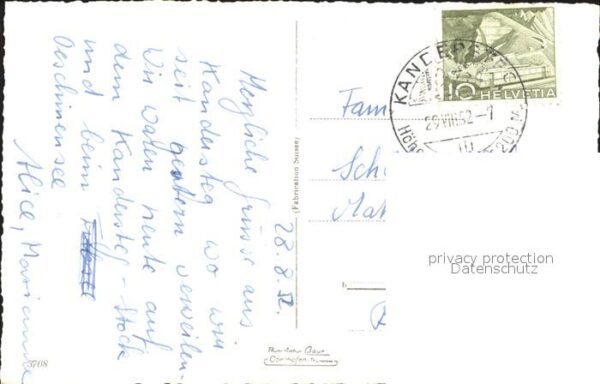 28.8.52.
Herzliche Grüsse aus
Kandersteg wo wir
seit gestern verweilen.
Wir waren heute auf
dem Kandersteg-Stock
und beim
Oeschinensee
Alice, Marianna
(Fabrication Suisse)
3708
KANDERSTEG
29.VIII.52-7
10
HELVETIA
Höhe
1200 M.
Fam
Sch
Mat
privacy protection
Datenschutz